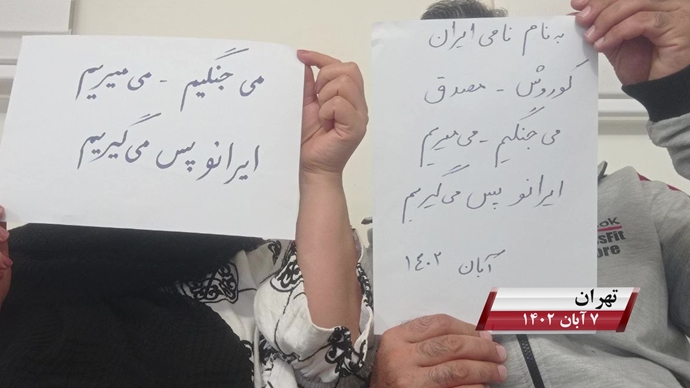 به نام نامی ایران
کوروش - مصدق
می‌جنگیم - می‌میریم
ایرانو پس می‌گیریم
آبان ۱۴۰۲
می‌جنگیم - می‌میریم
ایرانو پس می‌گیریم
تهران
۷ آبان ۱۴۰۲